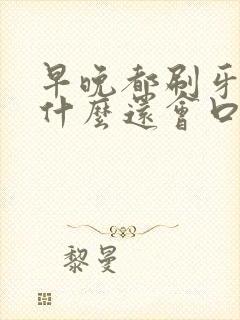 早晚都刷牙
什麼還會口
黎曼